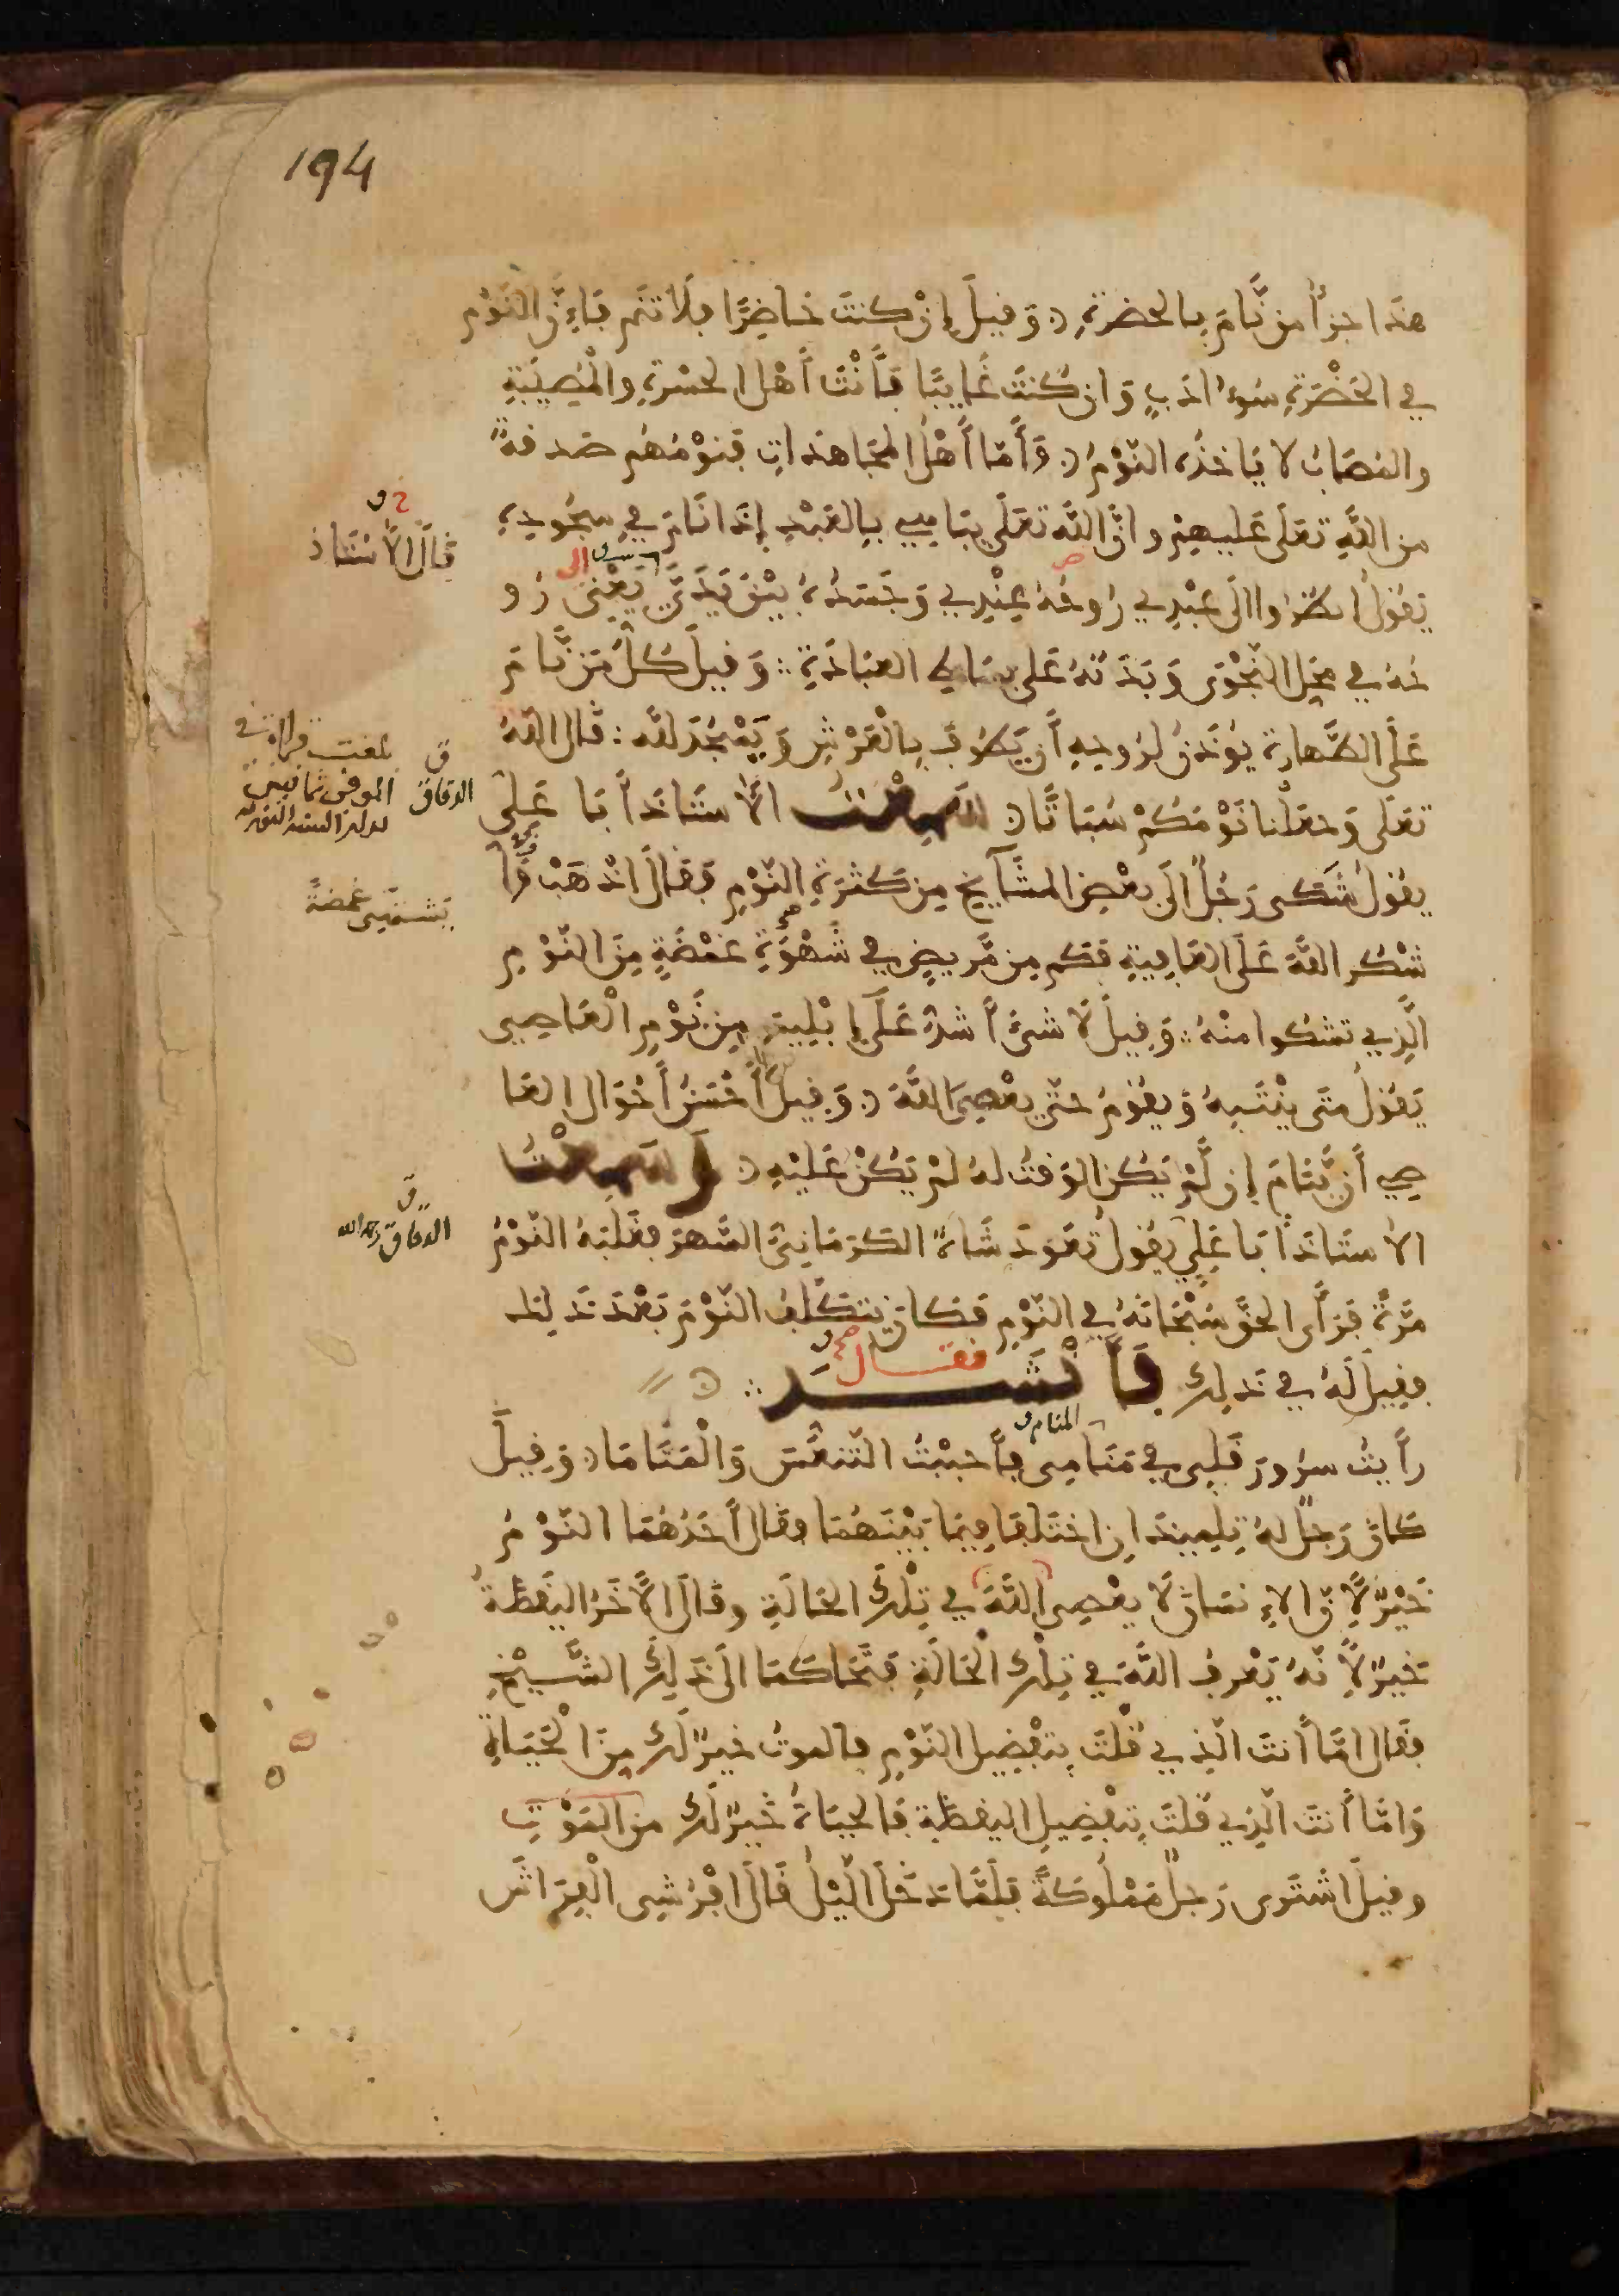 194
هَذَا جَزَاءُ مَن نَّامَ بِالحَضرَةِ وَقِيلَ إِنْ كُنتَ حَاضِرًا فَلَا تَنَم فَإِنَّ النَّوْمَ
فِي الحَضْرَةِ سُوءُ ادَبٍ وَان كُنتَ غَايِبًا فَأَنْتَ أَهْلُ الحسْرَةِ والْمُصِيبَةِ
والمُصَابُ لا يَاخذُه النَّوْمُ وَأَمَّا أَهْلُ المُجَاهدَاتِ فَنَوْمُهُم صَدقةٌ
من اللَّهِ تَعَلَى عَليهِمْ وانَّ اللَّهَ تَعَلَى يبَاهِي بِالعَبْدِ إِذَا نَامَ فِي سُجُودِهِ
قَالَ الأُسْتَاذ
يَقُولُ انظُرُوا الَى عَبْدِي رُوحُهُ عِنْدِي وَجَسَدُهُ بَيْنَ يَدَيَّ يَعْنِي رُو
حُهُ فِي مَحَلِ النَّجْوَى وَبَدَنُهُ عَلى بِسَاطِ العِبَادَةِ وَقِيلَ كُلُّ مَن نَّامَ
عَلَى الطَّهارَةِ يُوذَنُ لِرُوحِهِ أَن يَطُوفَ بِالْعَرْشِ وَيَسْجُدَ لِلَّه قَال اللَّهُ
تَعَلَى وَجعَلْنا نَوْمَكُمْ سُبَاتًا سَمِعْتُ الأُستَاذَ أَبَا عَلِي
الدقاق
بلغت قراءة في
يقُولُ شَكى رَجُلٌ الَى بعْضِ المشَايِخِ مِن كَثْرَةِ النَّوْمِ فَقَالَ اذْهَبْ فَا
شْكُر اللَّهَ عَلَى العَافِيَةِ فَكَم مِن مَّرِيضٍ فِي شَهْوَةِ غَمْضَةٍ مِنَ النَّوْمِ
يَشتَهِي غمضةً
الَّذِي تشكُوا منْهُ وَقِيلَ لَا شىْءَ أَشدُّ عَلَى إِبْلِيسَ مِن نَوْمِ الْعَاصِي
يَقُولُ مَتَى يَنْتَبِهُ وَيقُومُ حَتَّى يعْصِىَ اللَّهَ وَقِيلَ أَحْسَنُ أَحْوَال العَا
صِي أَن يَّنَامَ إِن لَّمْ يَكُنِ الوَقتُ لهُ لَمْ يَكُنْ عَلَيْهِ وَسَمِعْتُ
الأُستَاذَ أَبَا عَلِي يَقُولُ تَعَوَّدَ شَاه الكَرمَانِيُّ السَّهرَ فغَلَبَهُ النَّوْمُ
الدقاق رحمه الله
مَرَّةً فَرَأَى الحَقَّ سُبْحَانَهُ فِي النَّوْمِ فَكَانَ يَتَكَلَّفُ النَّوْمَ بَعْدَ ذَلِكَ
فقِيلَ لَهُ فِي ذَلِكَ فَأَنْشَدَ
فقال
رَأَيتُ سرُورَ قَلْبِى فِي مَنَامِى فَأَحبَبْتُ التَّنَعُّسَ وَالْمَنَامَا وَقِيلَ
المنام
كَانَ رَجلٌ لهُ تِلمِيذَانِ اختَلَفَا فِيمَا بَيْنَهُمَا فقَال أَحَدُهُمَا النَّوْمُ
خَيْرٌ لِأَنَّ الإِنسَانَ لَا يعْصِى اللَّهَ فِي تِلْكَ الحَالَةِ وقَالَ الأَخَرُ اليَقَظَةُ
خَيرٌ لِأَنَّهُ يَعْرِفُ اللَّهَ فِي تِلْكَ الْحَالَةِ فَتَحَاكَمَا الَى ذَلِكَ الشَّيْخِ
فقَال امَّا أَنتَ الَّذِي قُلْتَ بِتَفْضِيل النَّوْمِ فالموتُ خيرٌ لَكَ مِنَ الْحَيَاةِ
وَامَّا أَنتَ الَّذِي قُلتَ بِتَفْضِيلِ اليقظَةِ فَالحيَاةُ خَيرٌ لَكَ من المَوْتِ
وقِيلَ اشْتَرَى رَجلٌ مَمْلُوكَةً فَلَمَّا دَخَلَ اللَّيْلُ قَالَ افْرُشِى الْفِرَاشَ